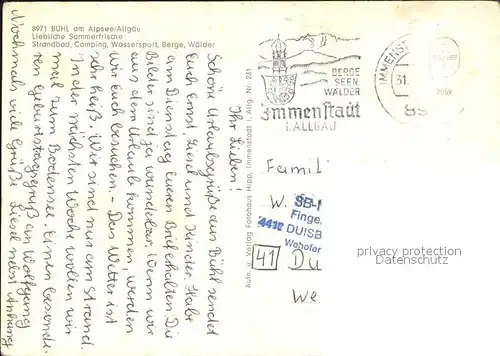 8971 BÜHL am Alpsee/Allgäu
Liebliche Sommerfrische
Strandbad, Camping, Wassersport, Berge, Wälder
Ihr Lieben!
Schöne Urlaubsgrüße aus Bühl sendet
Euch Ernst, Liesel und Kinder. Habt
am Dienstag Euren Brief erhalten. Die
Bilder sind ja wunderbar. Wenn wir
aus dem Urlaub kommen, werden
wir Euch besuchen - Das Wetter ist
sehr heiß. Wir sind nur am Strand.
In der nächsten Woche wollen wir
mal zum Bodensee. Einen besonde-
ren Geburtstagsgruß an Wolfgang
Nochmals viele Grüße Liesel nebst Anhang
Aufn. u. Verlag Fotohaus Hipp, Immenstadt i. Allg. Nr. 231
BERGE
SEEN
WÄLDER
Immenstadt
i. ALLGÄU
IMMENST
31.
89
Famil
W.
SB-
Finge
4412 DUISB
Wehofer
41 Du
We
privacy protection
Datenschutz